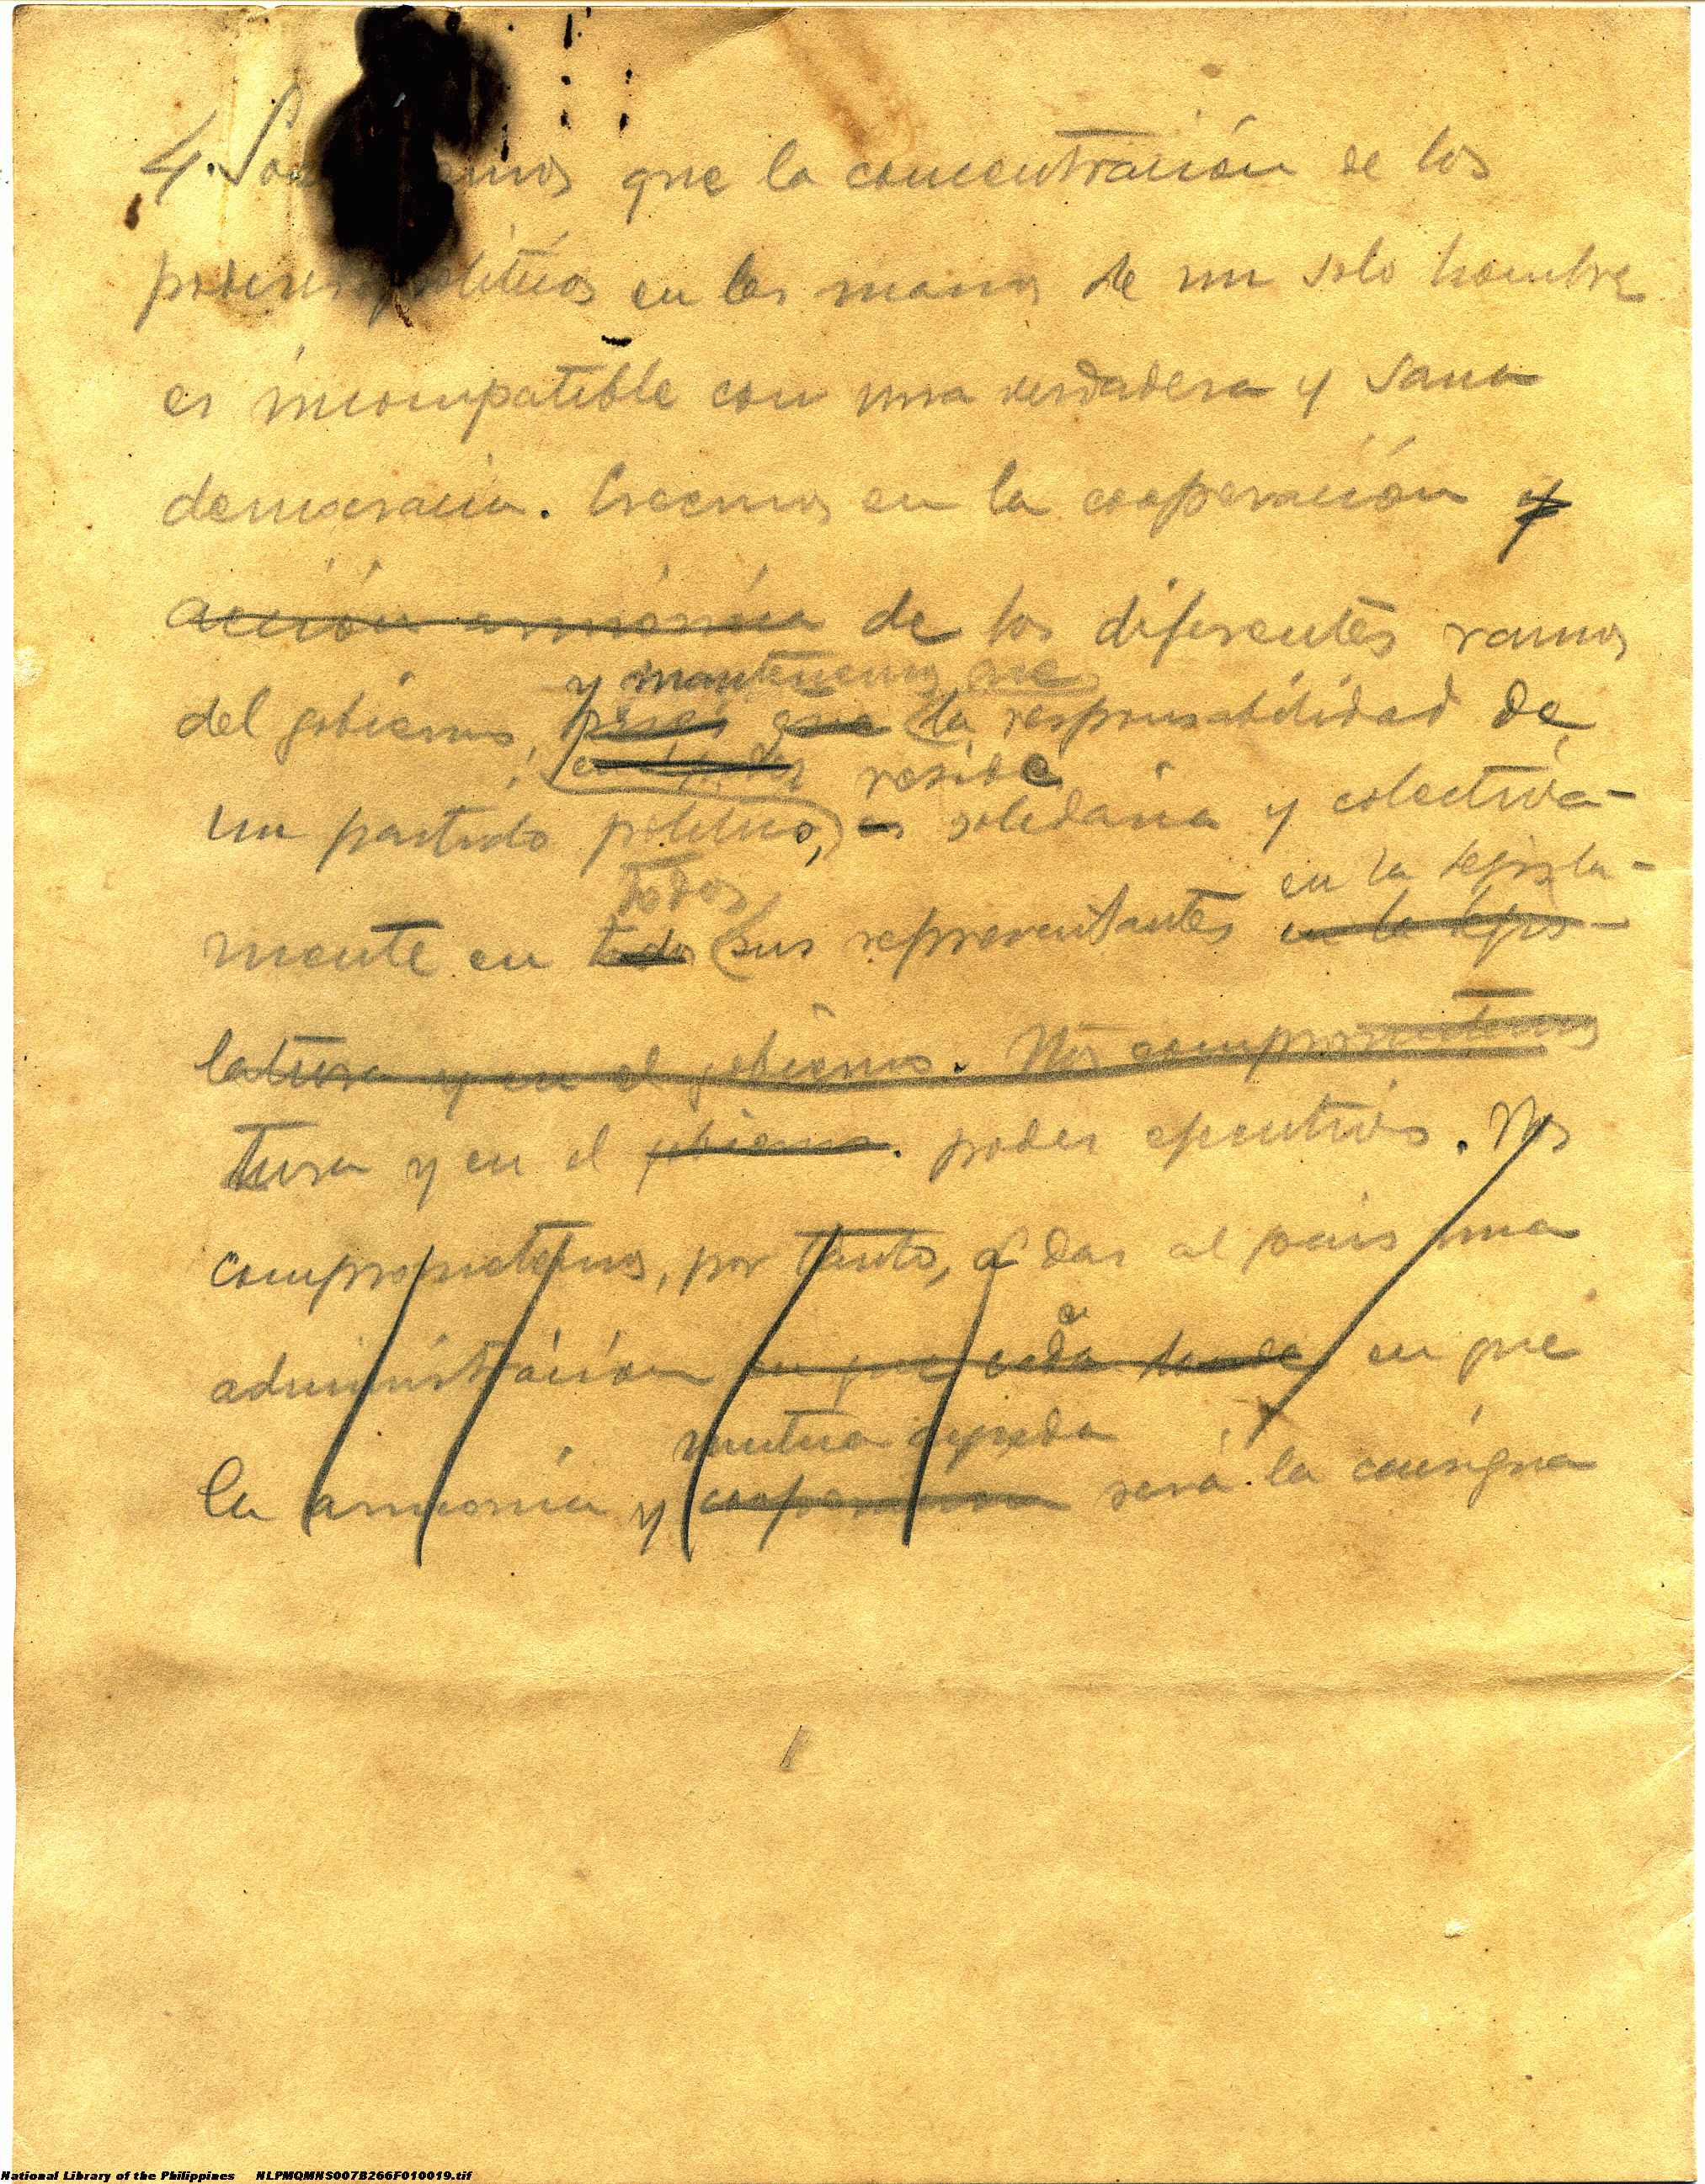 4. Sos mos que la concentración de los
poderes políticos en las manos de un solo hombre
es incompatible con una verdadera y sana
democracia. Creemos en la cooperación y
acción armónica de los diferentes ramos
y mantenemos que
del gobierno, pues que la responsabilidad de
reside
un partido político, es solidaria y colectiva-
todos en la legisla-
mente en todos sus representantes en la legis-
latura y en el gobierno. Nos comprometemos
tura y en el gobierno. poder ejecutivo. Nos
comprometemos, por tanto, a dar al pais una
administración en que cada en que
mutua ayuda
la armonía y cooperacion será la consigna
National Library of the Philippines NLPMQMNS007B266F010019.tif